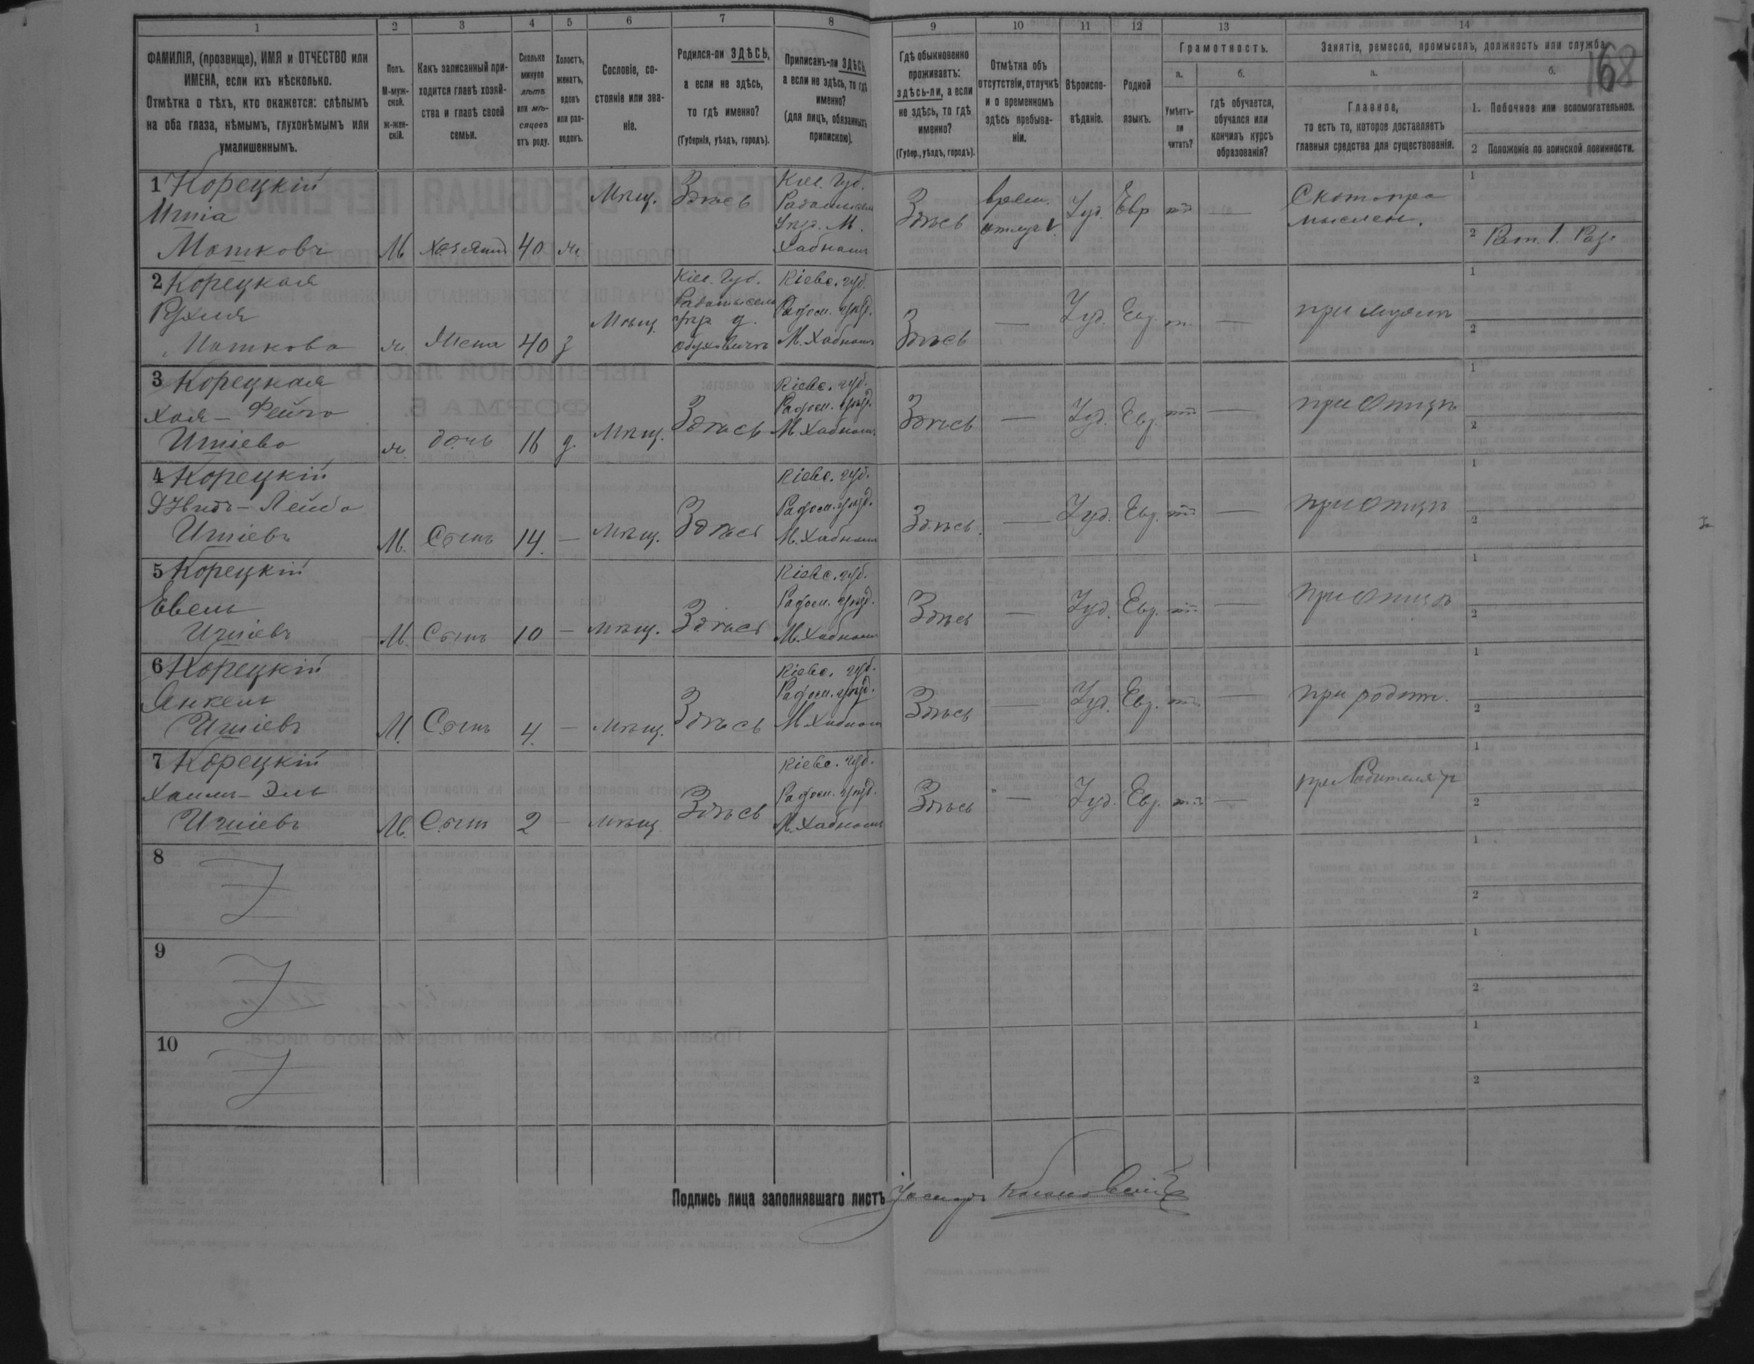 168
1 2 3 4 5 6 7 8 9 10 11 12 13 14
ФАМИЛІЯ, (прозвище), ИМЯ и ОТЧЕСТВО или
ИМЕНА, если ихъ нѣсколько.
Отмѣтка о тѣхъ, кто окажется: слѣпымъ
на оба глаза, нѣмымъ, глухонѣмымъ или
умалишеннымъ.
Полъ.
М-муж-
ской.
ж-жен-
скій.
Какъ записанный при-
ходится главѣ хозяй-
ства и главѣ своей
семьи.
Сколько
минуло
лѣтъ
или мѣ-
сяцевъ
отъ роду.
Холостъ,
женатъ,
вдовъ
или раз-
веденъ.
Сословіе, со-
стояніе или зва-
ніе.
Родился-ли ЗДѢСЬ,
а если не здѣсь,
то гдѣ именно?
(Губернія, уѣздъ, городъ).
Приписанъ-ли ЗДѢСЬ,
а если не здѣсь, то гдѣ
именно?
(для лицъ, обязанныхъ
припискою).
Гдѣ обыкновенно
проживаетъ:
здѣсь-ли, а если
не здѣсь, то гдѣ
именно?
(Губер., уѣздъ, городъ).
Отмѣтка объ
отсутствіи, отлучкѣ
и о временномъ
здѣсь пребыва-
ніи.
Вѣроиспо-
вѣданіе.
Родной
языкъ.
Грамотность.
а.
Умѣетъ-
ли
читать?
б.
гдѣ обучается,
обучался или
кончилъ курсъ
образованія?
Занятіе, ремесло, промыселъ, должность или служба.
а.
Главное,
то есть то, которое доставляетъ
главныя средства для существованія.
б.
1. Побочное или вспомогательное.
2 Положеніе по воинской повинности.
1 Корецкій
Ишія
Мошковъ
М Хозяинъ 40 ж. Мѣщ. Здѣсь
Кіев. Губ.
Хабномъ
Здѣсь
врем. Іуд. Евр — 
1
2
2 Корецкая
Рухля
Мошкова
ж. Жена 40 з Мѣщ.
Кіев. Губ.
Кіевс. губ.
Радом. уѣзд.
М. Хабномъ
Здѣсь — Іуд. Евр. — при мужѣ
1
2
3 Корецкая
Хая-Фейга
Ишіева
ж. дочь 16 д. Мѣщ. Здѣсь
Кіевс. губ.
Радом. уѣзд.
М. Хабномъ
Здѣсь — Іуд. Евр. — при отцѣ
1
2
4 Корецкій
Лейба
Ишіевъ
М. Сынъ 14 — мѣщ. Здѣсь
Кіевс. губ.
Радом. уѣзд.
М. Хабномъ
Здѣсь. — Іуд. Евр. — при отцѣ
1
2
5 Корецкій
Евель
Ишіевъ
М. Сынъ 10 — мѣщ. Здѣсь
Кіевс. губ.
Радом. уѣзд.
М. Хабномъ
Здѣсь — Іуд. Евр. — при отцѣ
1
2
6 Корецкій
Янкель
Ишіевъ
М. Сынъ 4. — мѣщ. Здѣсь
Кіевс. губ.
Радом. уѣзд.
М. Хабномъ
Здѣсь — Іуд. Евр. — при родит.
1
2
7 Корецкій
Ишіевъ
М. Сынъ 2 — мѣщ Здѣсь
Кіевс. губ.
Радом. уѣзд.
М. Хабномъ
Здѣсь — Іуд. Евр. — при родителяхъ
1
2
8
1
2
9
1
2
10
1
2
Подпись лица заполнявшаго листъ